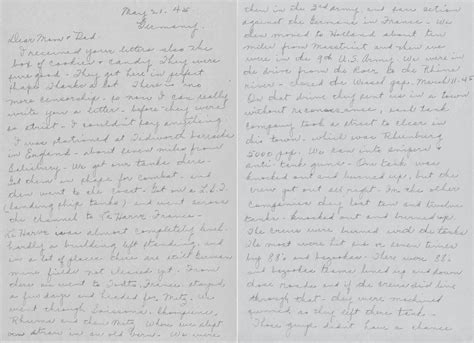 May 21. 45
Germany.
Dear Mom & Dad.
I received your letters also the
box of cookies & candy. They were
sure good. They got here in perfect
shape Thanks a lot. There is no
more censorship, so now I can really
write you a letter. before they were
so strict. I couldn't say anything.
I was stationed at Tedworth barracks
in England. about seven miles from
Salisbury. We got our tanks there.
Got them in shape for combat. and
then went to the coast. Got on a L.S.T.
(landing ship tanks) and went across
the channel to Le Harve France.
Le Harve is almost completely
Hardly a building left standing, and
in a lot of places there are still German
mine fields not cleared yet. From
there we went to France. stayed
a few days and headed for Metz. We
went through Soissons.
Rheims and then Metz. Where we slept
on straw in an old barn. We were
then in the 3rd army, and saw action
against the Germans in France. We
then moved to Holland about ten
miles from Mastrict and then we
were in the 9th U.S. Army. We were in
the drive from the Roer, to the Rhine
river. closed the Wesel gap. March 11-45
On that drive they sent us in a town
without reconnaissance, each tank
company took a street to clear in
this town. which was Rheinberg
5000 pop. We ran into snipers &
anti tank guns. One tank was
knocked out and burned up, but the
crew got out all right. In the other
companies they lost ten and twelve
tanks. Knocked out and burned up.
The crews were burned with the tanks
The most were hit six or seven times
by 88's and bazookas. There were 88's
and bazooka teams lined up and down
those roads and if the crews did live
through that. they were machine
gunned, as they left there tanks.
Those guys didn't have a chance